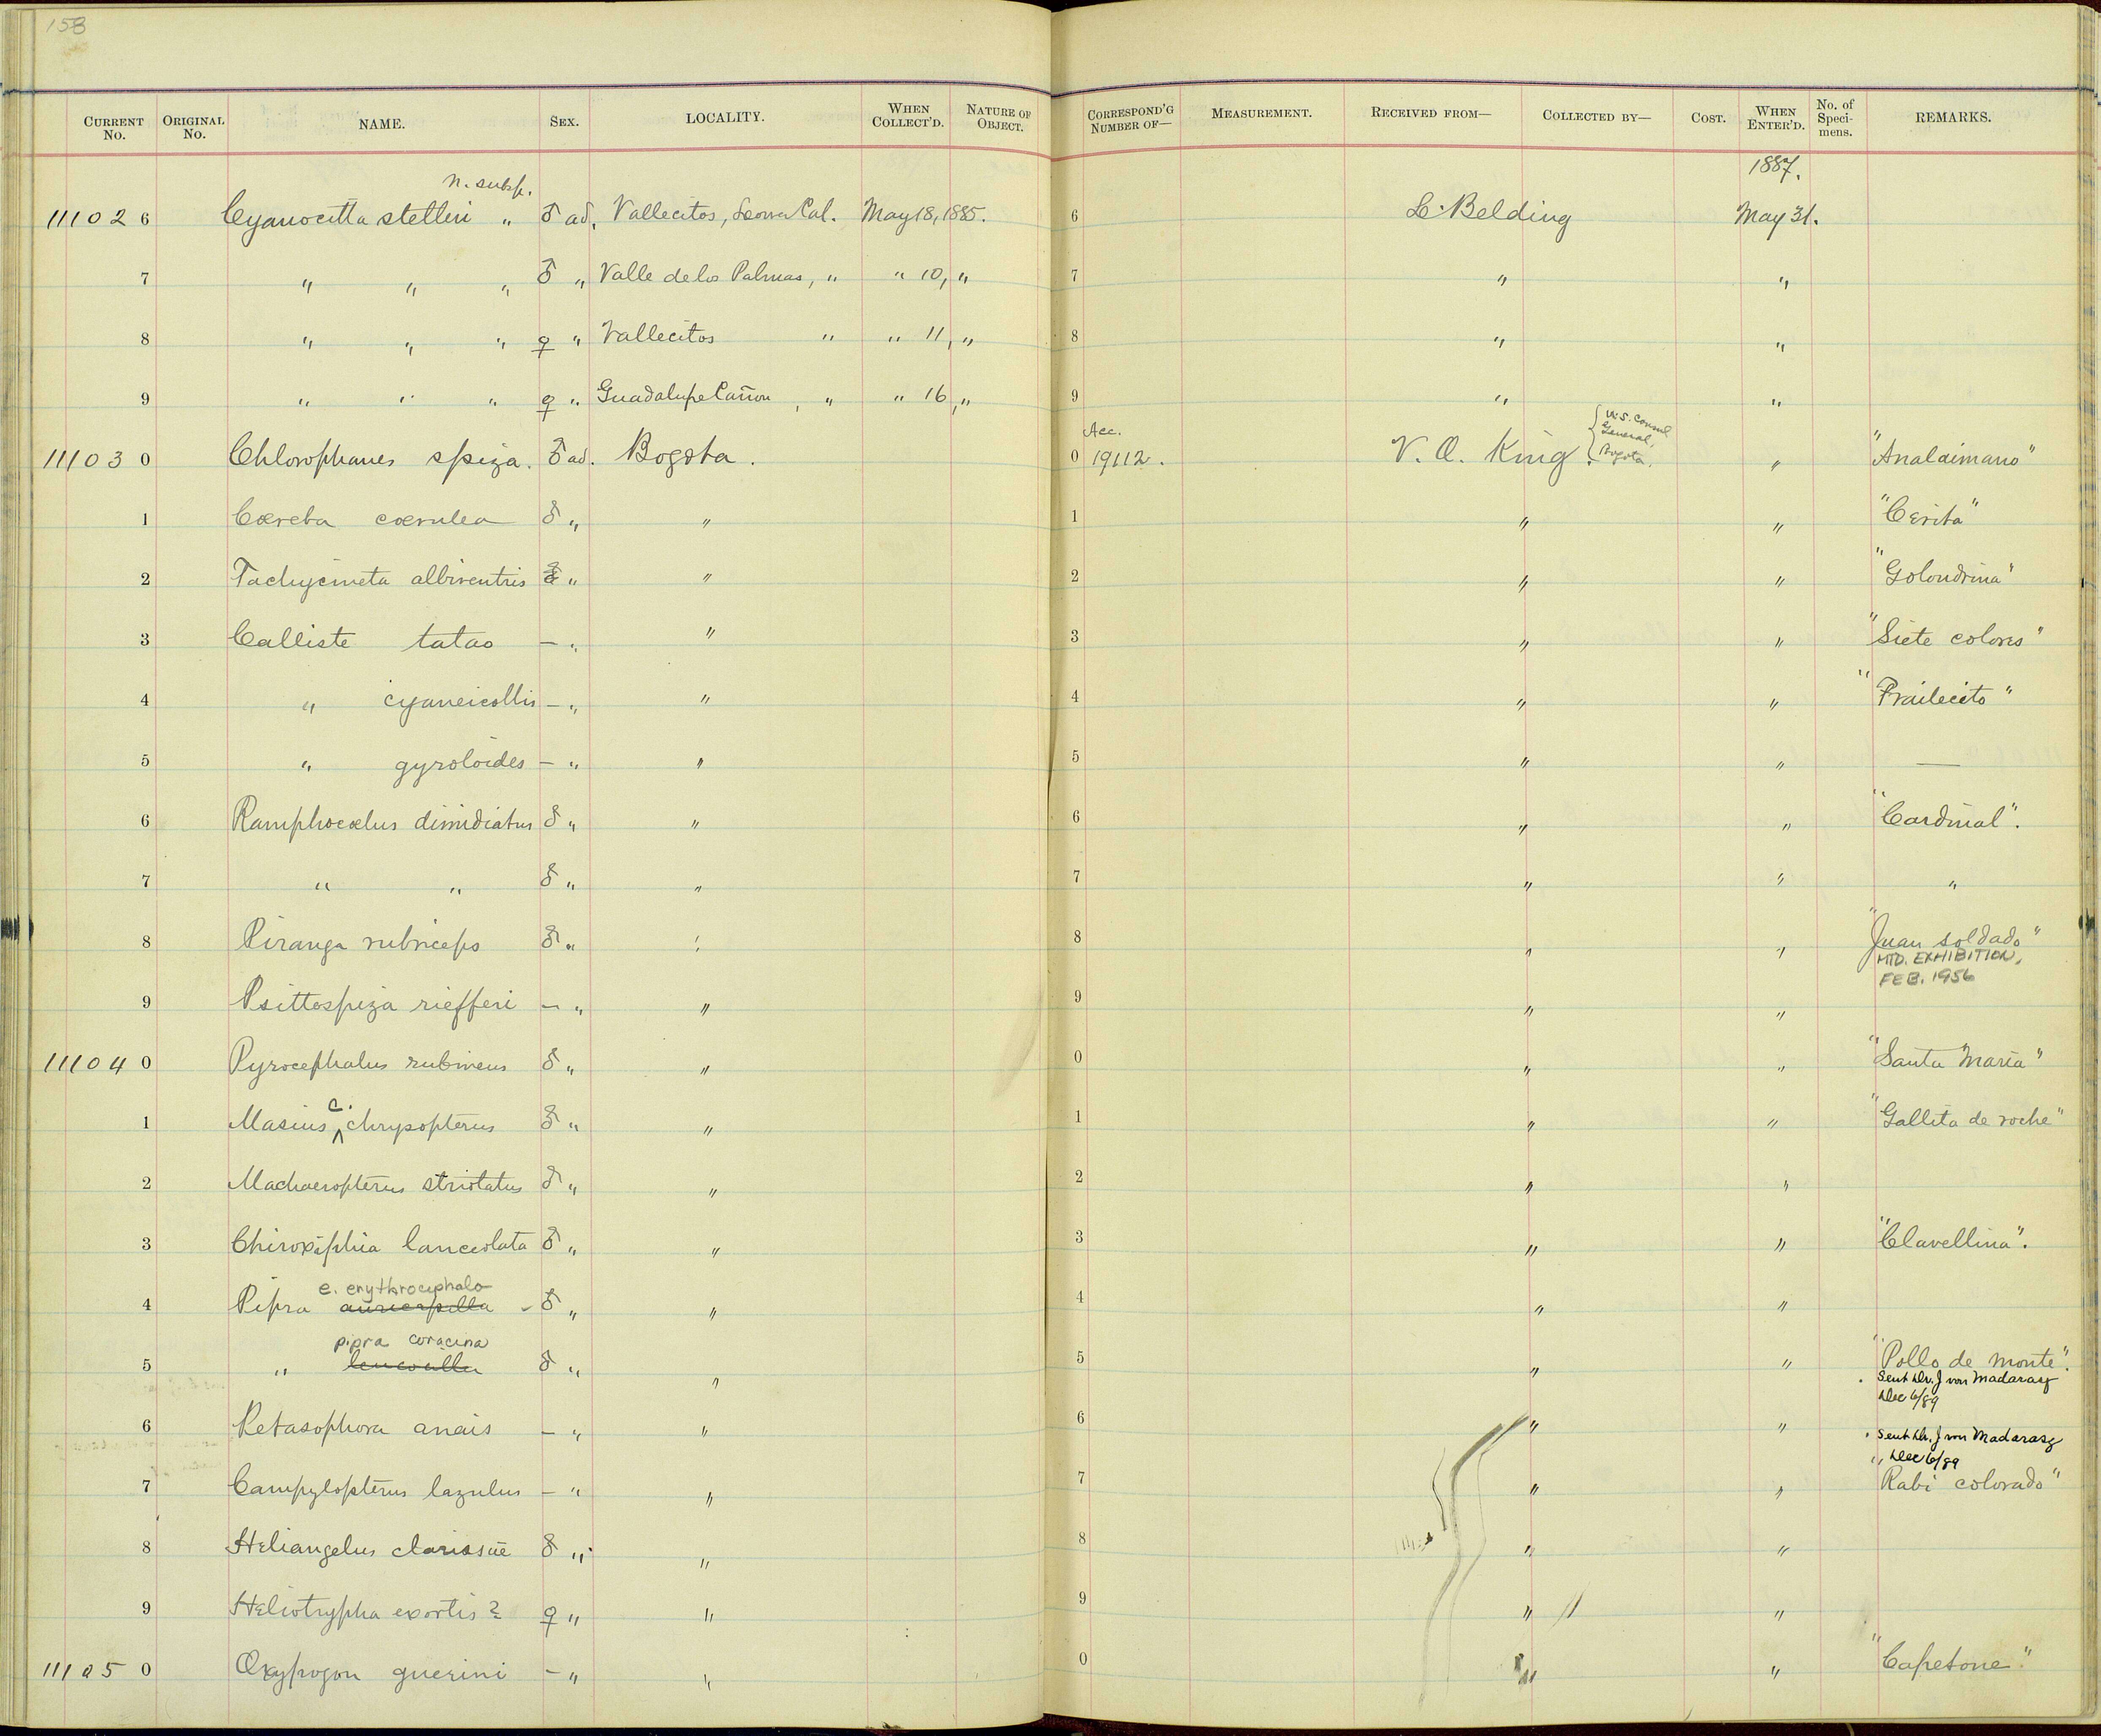 158
CURRENT No. ORIGINAL No. NAME. SEX. LOCALITY. WHEN COLLECT'D. NATURE OF OBJECT. CORRESPOND'G NUMBER OF— MEASUREMENT. RECEIVED FROM— COLLECTED BY— COST. WHEN ENTER'D. No. of Specimens. REMARKS.
1887.
n. subsp.
11102 6 Cyanocitta stelleri " ♂ ad. Vallecitos, Lower Cal. May 18, 1885. 6 L. Belding May 31.
7 " " " ♂ " Valle de los Palmas, " " 10, " 7 " "
8 " " " ♀ " Vallecitos " " 11, " 8 " "
9 " " " ♀ " Guadalupe Cañon, " " 16, " 9 " "
Acc. { U.S. Consul General, Bogota.
11103 0 Chlorophanes spiza. ♂ ad. Bogota. 0 19112. V. O. King. " "Analdimano"
1 Cœreba cœrulea ♂ " " 1 " " "Cerita"
2 Tachycineta albiventris ♂ " " 2 " " "Golondrina"
3 Calliste tatao — " " 3 " " "Siete colores"
4 " cyaneicollis — " " 4 " " "Frailecito"
5 " gyroloides — " " 5 " " —
6 Ramphocœlus dimidiatus ♂ " " 6 " " "Cardinal".
7 " " ♂ " " 7 " " "
8 Piranga rubriceps ♂ " " 8 " " "Juan soldado"
MTD. EXHIBITION,
FEB. 1956
9 Psittospiza riefferi — " " 9 " "
11104 0 Pyrocephalus rubineus ♂ " " 0 " " "Santa Maria"
1 Masius c. chrysopterus ♂ " " 1 " " "Gallito de roche"
2 Machaeropterus striolatus ♂ " " 2 " "
3 Chiroxiphia lanceolata ♂ " " 3 " " "Clavellina".
e. erythrocephala
4 Pipra auricapilla - ♂ " " 4 " "
pipra coracina
5 " leucocilla ♂ " " 5 " " "Pollo de monte".
Sent Dr. J von Madarasz
Dec 6/89
6 Petasophora anais — " " 6 " " Sent Dr. J von Madarasz
Dec 6/89
7 Campylopterus lazulus — " " 7 " " "Rabi colorado"
8 Heliangelus clarissæ ♂ " " 8 " "
9 Heliotrypha exortis? ♀ " " 9 " "
11105 0 Oxypogon guerini — " " 0 " " "Capetone".